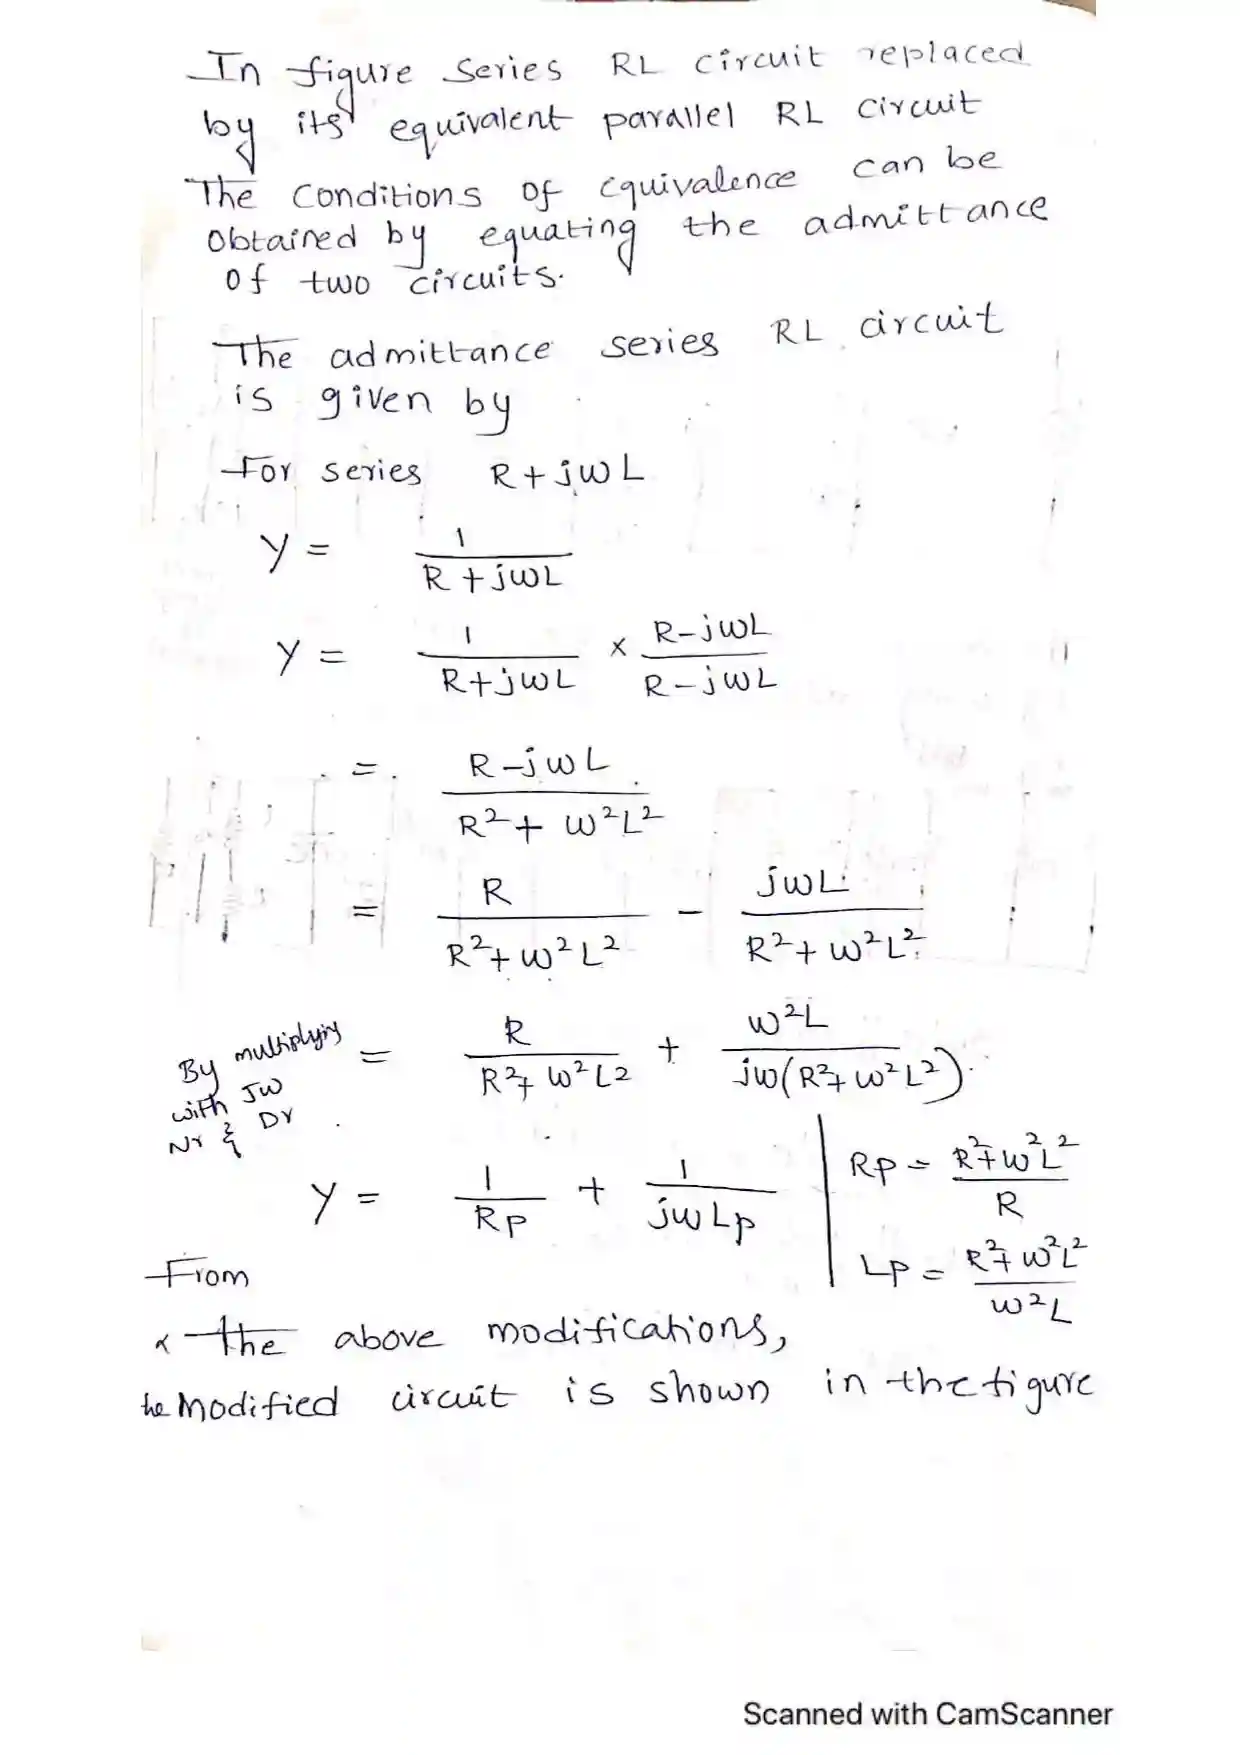 In figure series RL circuit replaced
by its equivalent parallel RL circuit
The conditions of equivalence can be
obtained by equating the admittance
of two circuits.
The admittance series RL circuit
is given by
For series R + jωL
Y = 1 / (R + jωL)
Y = 1 / (R+jωL) × (R-jωL) / (R-jωL)
= (R-jωL) / (R² + ω²L²)
= R / (R²+ω²L²) - jωL / (R²+ω²L²)
By multiplying with jω Nr & Dr = R / (R²+ω²L²) + ω²L / jω(R²+ω²L²)
Y = 1/Rp + 1/jωLp
Rp = (R²+ω²L²) / R
Lp = (R²+ω²L²) / ω²L
From
the above modifications,
the modified circuit is shown in the figure
Scanned with CamScanner